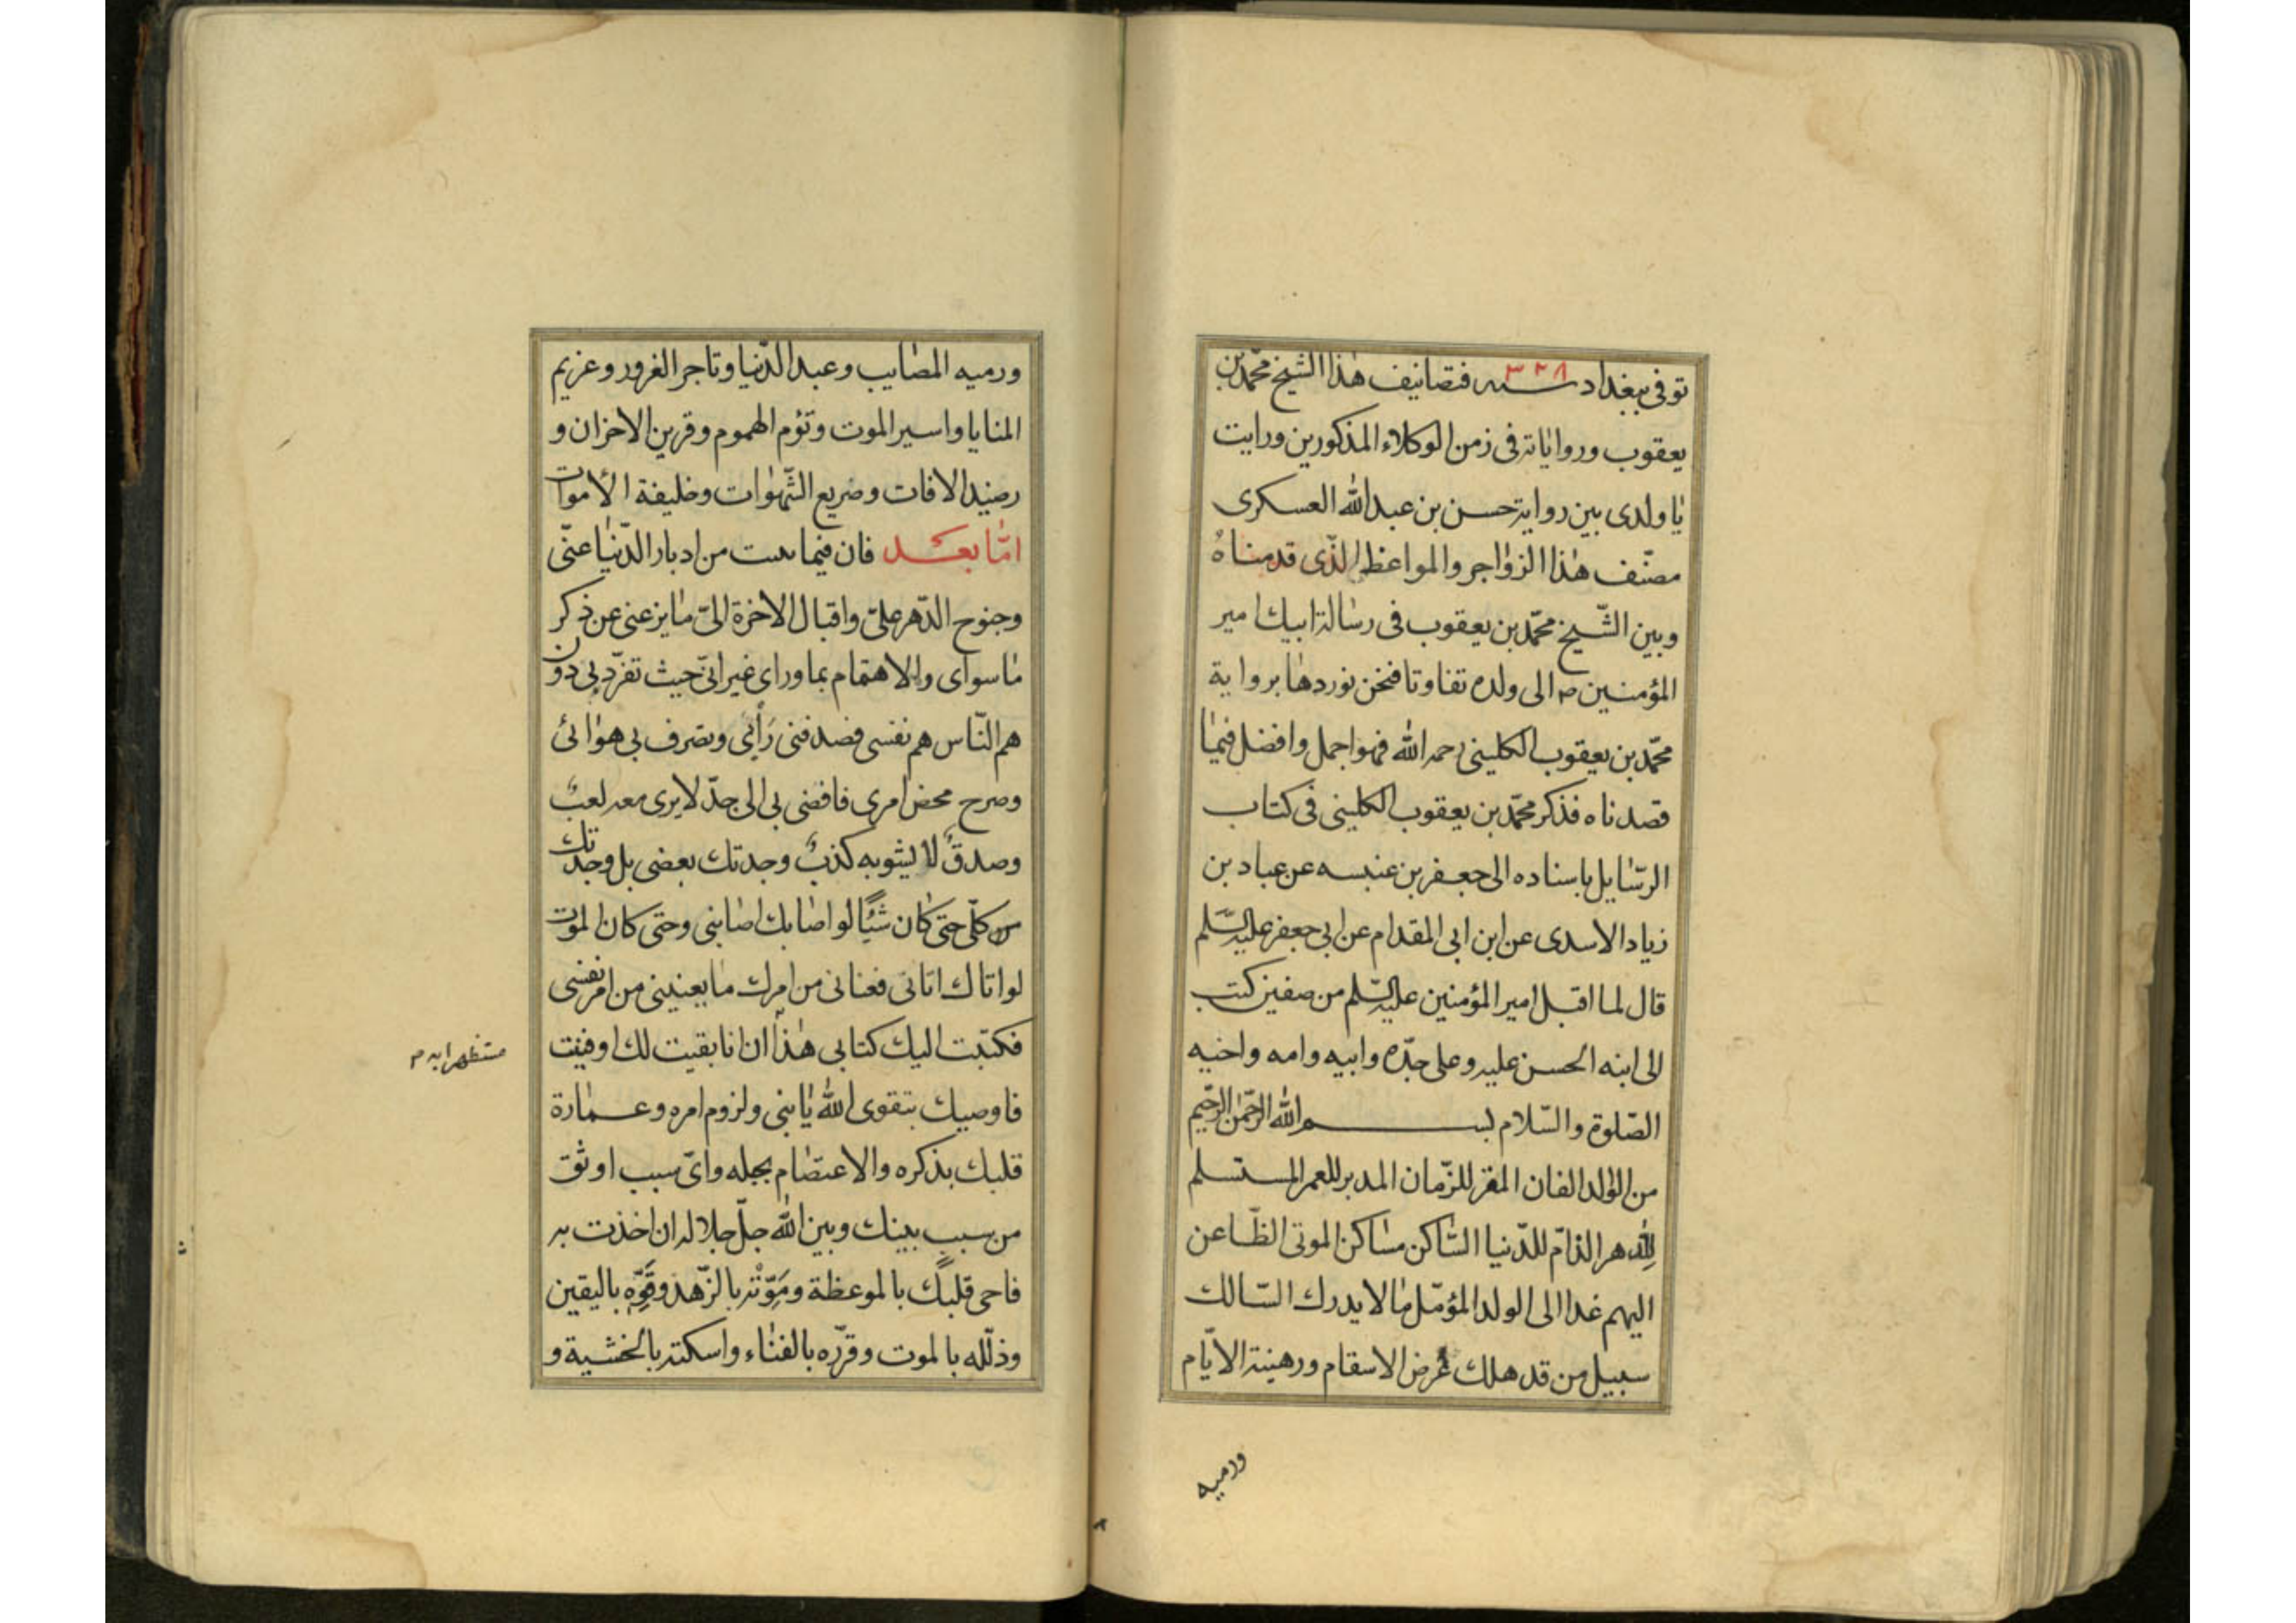 توفی ببغداد سنه ٣٢٨ فتصانیف هذا الشیخ محمّد بن
یعقوب وروایاته فی زمن الوکلاء المذکورین ورایت
یا ولدی بین روایة حسن بن عبد الله العسکری
مصنّف هذا الزواجر والمواعظ الذّی قدمناه
وبین الشّیخ محمّد بن یعقوب فی رسالة ابیك امیر
المؤمنین ص الی ولده تفاوتا فنحن نوردها بروایة
محمّد بن یعقوب الکلینی رحمه الله فهو اجمل وافضل فیما
قصدناه فذکر محمّد بن یعقوب الکلینی فی کتاب
الرسایل باسناده الی جعفر بن عنبسه عن عباد بن
زیاد الاسدی عن ابن ابی المقدام عن ابی جعفر علیه السّلم
قال لما اقبل امیر المؤمنین علیه السّلم من صفین کتب
الی ابنه الحسن علیه وعلی جدّه وابیه وامه واخیه
الصّلوة والسّلام بسم الله الرّحمن الرّحیم
من الوالد الفان المقر للزّمان المدبر للعمر المستسلم
للدهر الذامّ للدّنیا السّاکن مساکن الموتی الظّاعن
الیهم غدا الی الولد المؤمّل ما لا یدرك السّالك
سبیل من قد هلك غرض الاسقام ورهینة الایّام
ورمیه
ورمیه المصایب وعبد الدّنیا وتاجر الغرور وغریم
المنایا واسیر الموت وتؤم الهموم وقرین الاحزان و
رصید الافات وصریع الشّهوات وخلیفة الأموات
امّا بعد فان فیما ست من ادبار الدّنیا عنّی
وجنوح الدّهر علیّ واقبال الاخرة الیّ ما یزعنی عن ذکر
ما سوای والاهتمام بما ورای غیر انّی حیث تفرّد بی دون
هم النّاس هم نفسی فصدفنی رَأْیی وتصرف بی هوائی
وصرح محض امری فافضی بی الی جدّ لا یری معه لعبٌ
وصدقٌ لا یشوبه کذبٌ وجدتك بعضی بل وجدتك
کلّی حتی کان شیئًا لو اصابك اصابنی وحتی کان الموت
لو اتاك اتانی فعنانی من امرك ما یعنینی من امر نفسی
فکتبت الیك کتابی هذا ان انا بقیت لك او فنیت
مستظهرا به م
فاوصیك بتقوی الله یا بنی ولزوم امره وعمارة
قلبك بذکره والاعتصام بحبله وایّ سبب اوثق
من سبب بینك وبین الله جلّ جلاله ان اخذت به
فاحی قلبك بالموعظة ومَوِّتْه بالزّهد وقَوِّه بالیقین
وذلّله بالموت وقرّره بالفناء واسکته بالخشیة و